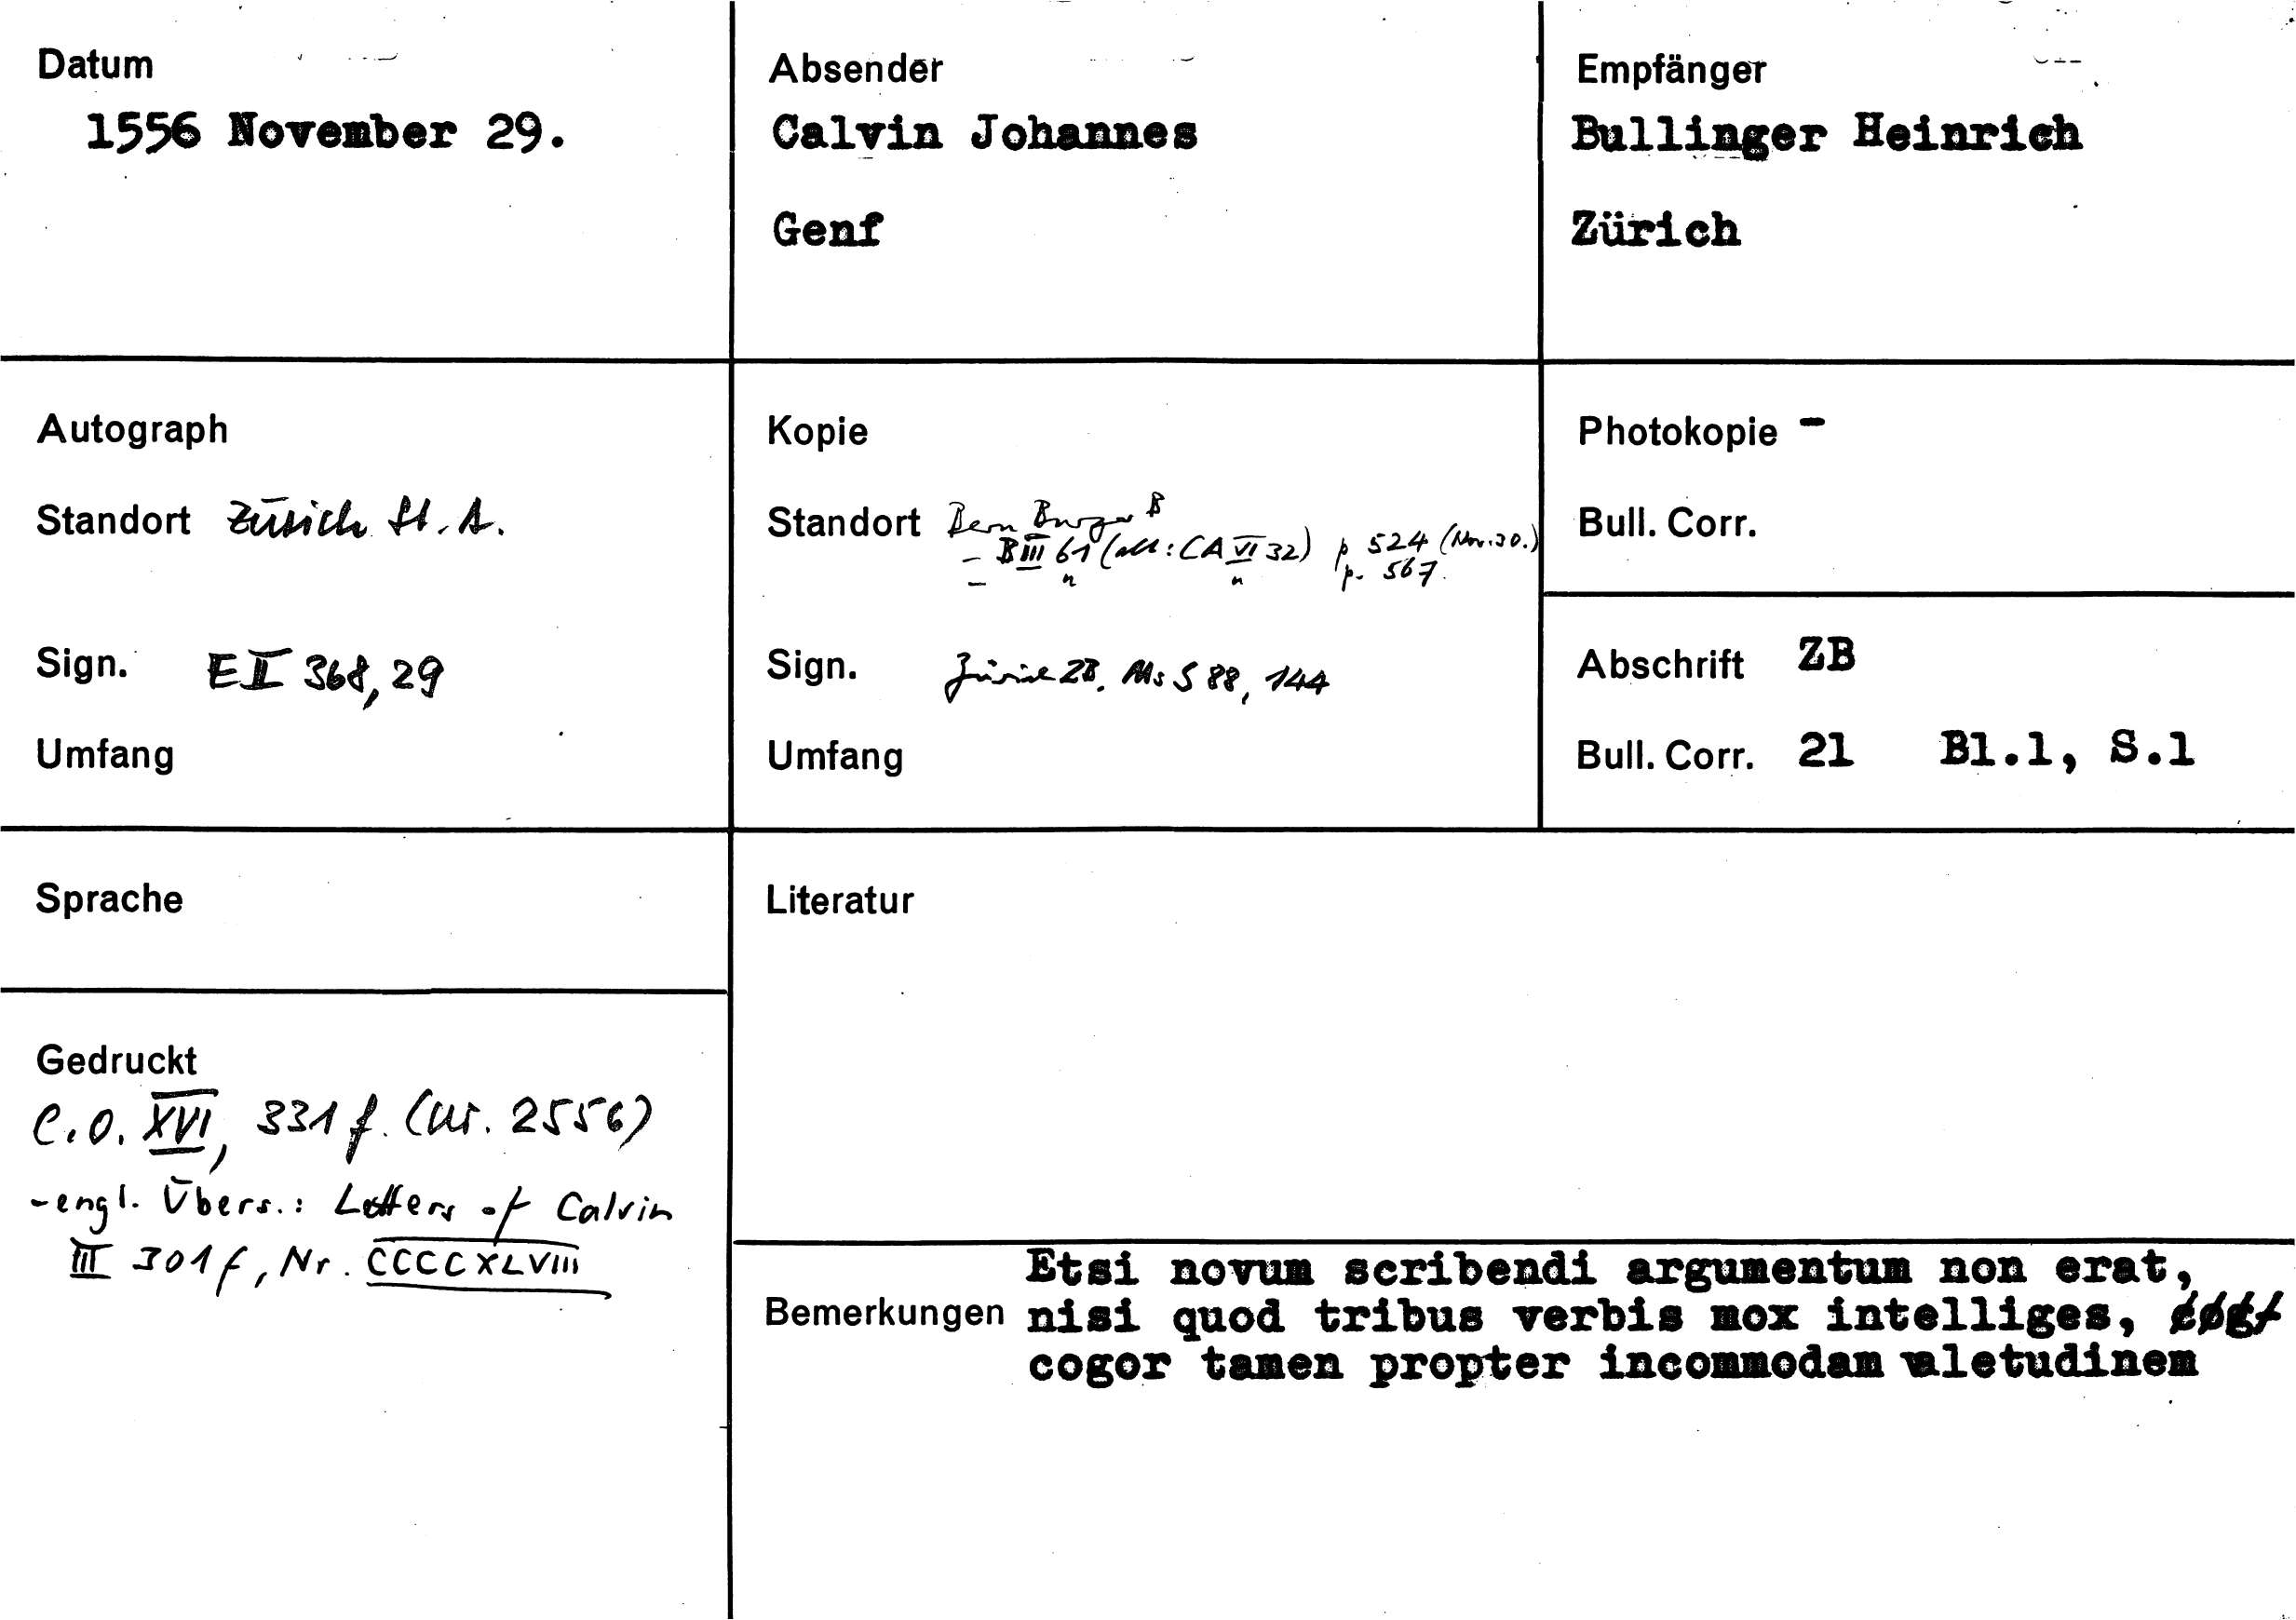 Datum
1556 November 29.
Absender
Calvin Johannes
Genf
Empfänger
Bullinger Heinrich
Zürich
Autograph
Standort Zürich St. A.
Sign. E II 368, 29
Umfang
Kopie
Standort Bern Burger B
- B III 61 (alt: CA VI 32) p 524 (Nov. 30.)
- " " p. 567.
Sign. Zürich ZB, Ms S 88, 144
Umfang
Photokopie -
Bull. Corr.
Abschrift ZB
Bull. Corr. 21 Bl.1, S.1
Sprache
Gedruckt
C.O. XVI, 331 f. (Nr. 2556)
- engl. Übers.: Letters of Calvin
III 301 f, Nr. CCCCXLVIII
Literatur
Bemerkungen
Etsi novum scribendi argumentum non erat,
nisi quod tribus verbis mox intelliges,
cogor tamen propter incommodam valetudinem